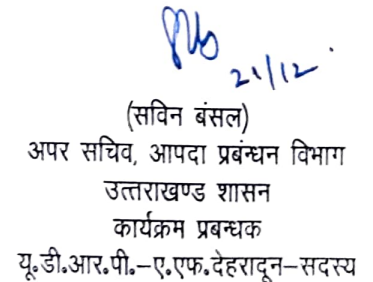 21/12
(सविन बंसल)
अपर सचिव, आपदा प्रबंन्धन विभाग
उत्तराखण्ड शासन
कार्यक्रम प्रबन्धक
यू.डी.आर.पी.-ए.एफ.देहरादून-सदस्य